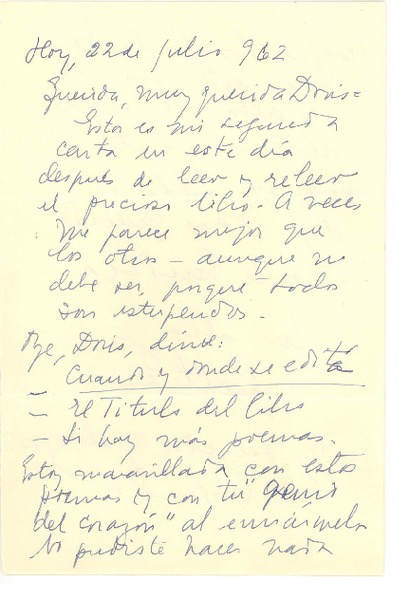 Hoy, 22 de Julio 962
Querida, muy querida Doris=
Esta es mi segunda
carta en este día
después de leer y releer
el precioso libro. A veces
me parece mejor que
los otros — aunque no
debe ser, porque todos
son estupendos.
Oye, Doris, dime:
Cuando y donde se edita
— El Titulo del libro
— Si hay más poemas.
Estoy maravillada con estos
poemas y con tu "Genio
del corazón" al enviármelo
No pudiste hacer nada